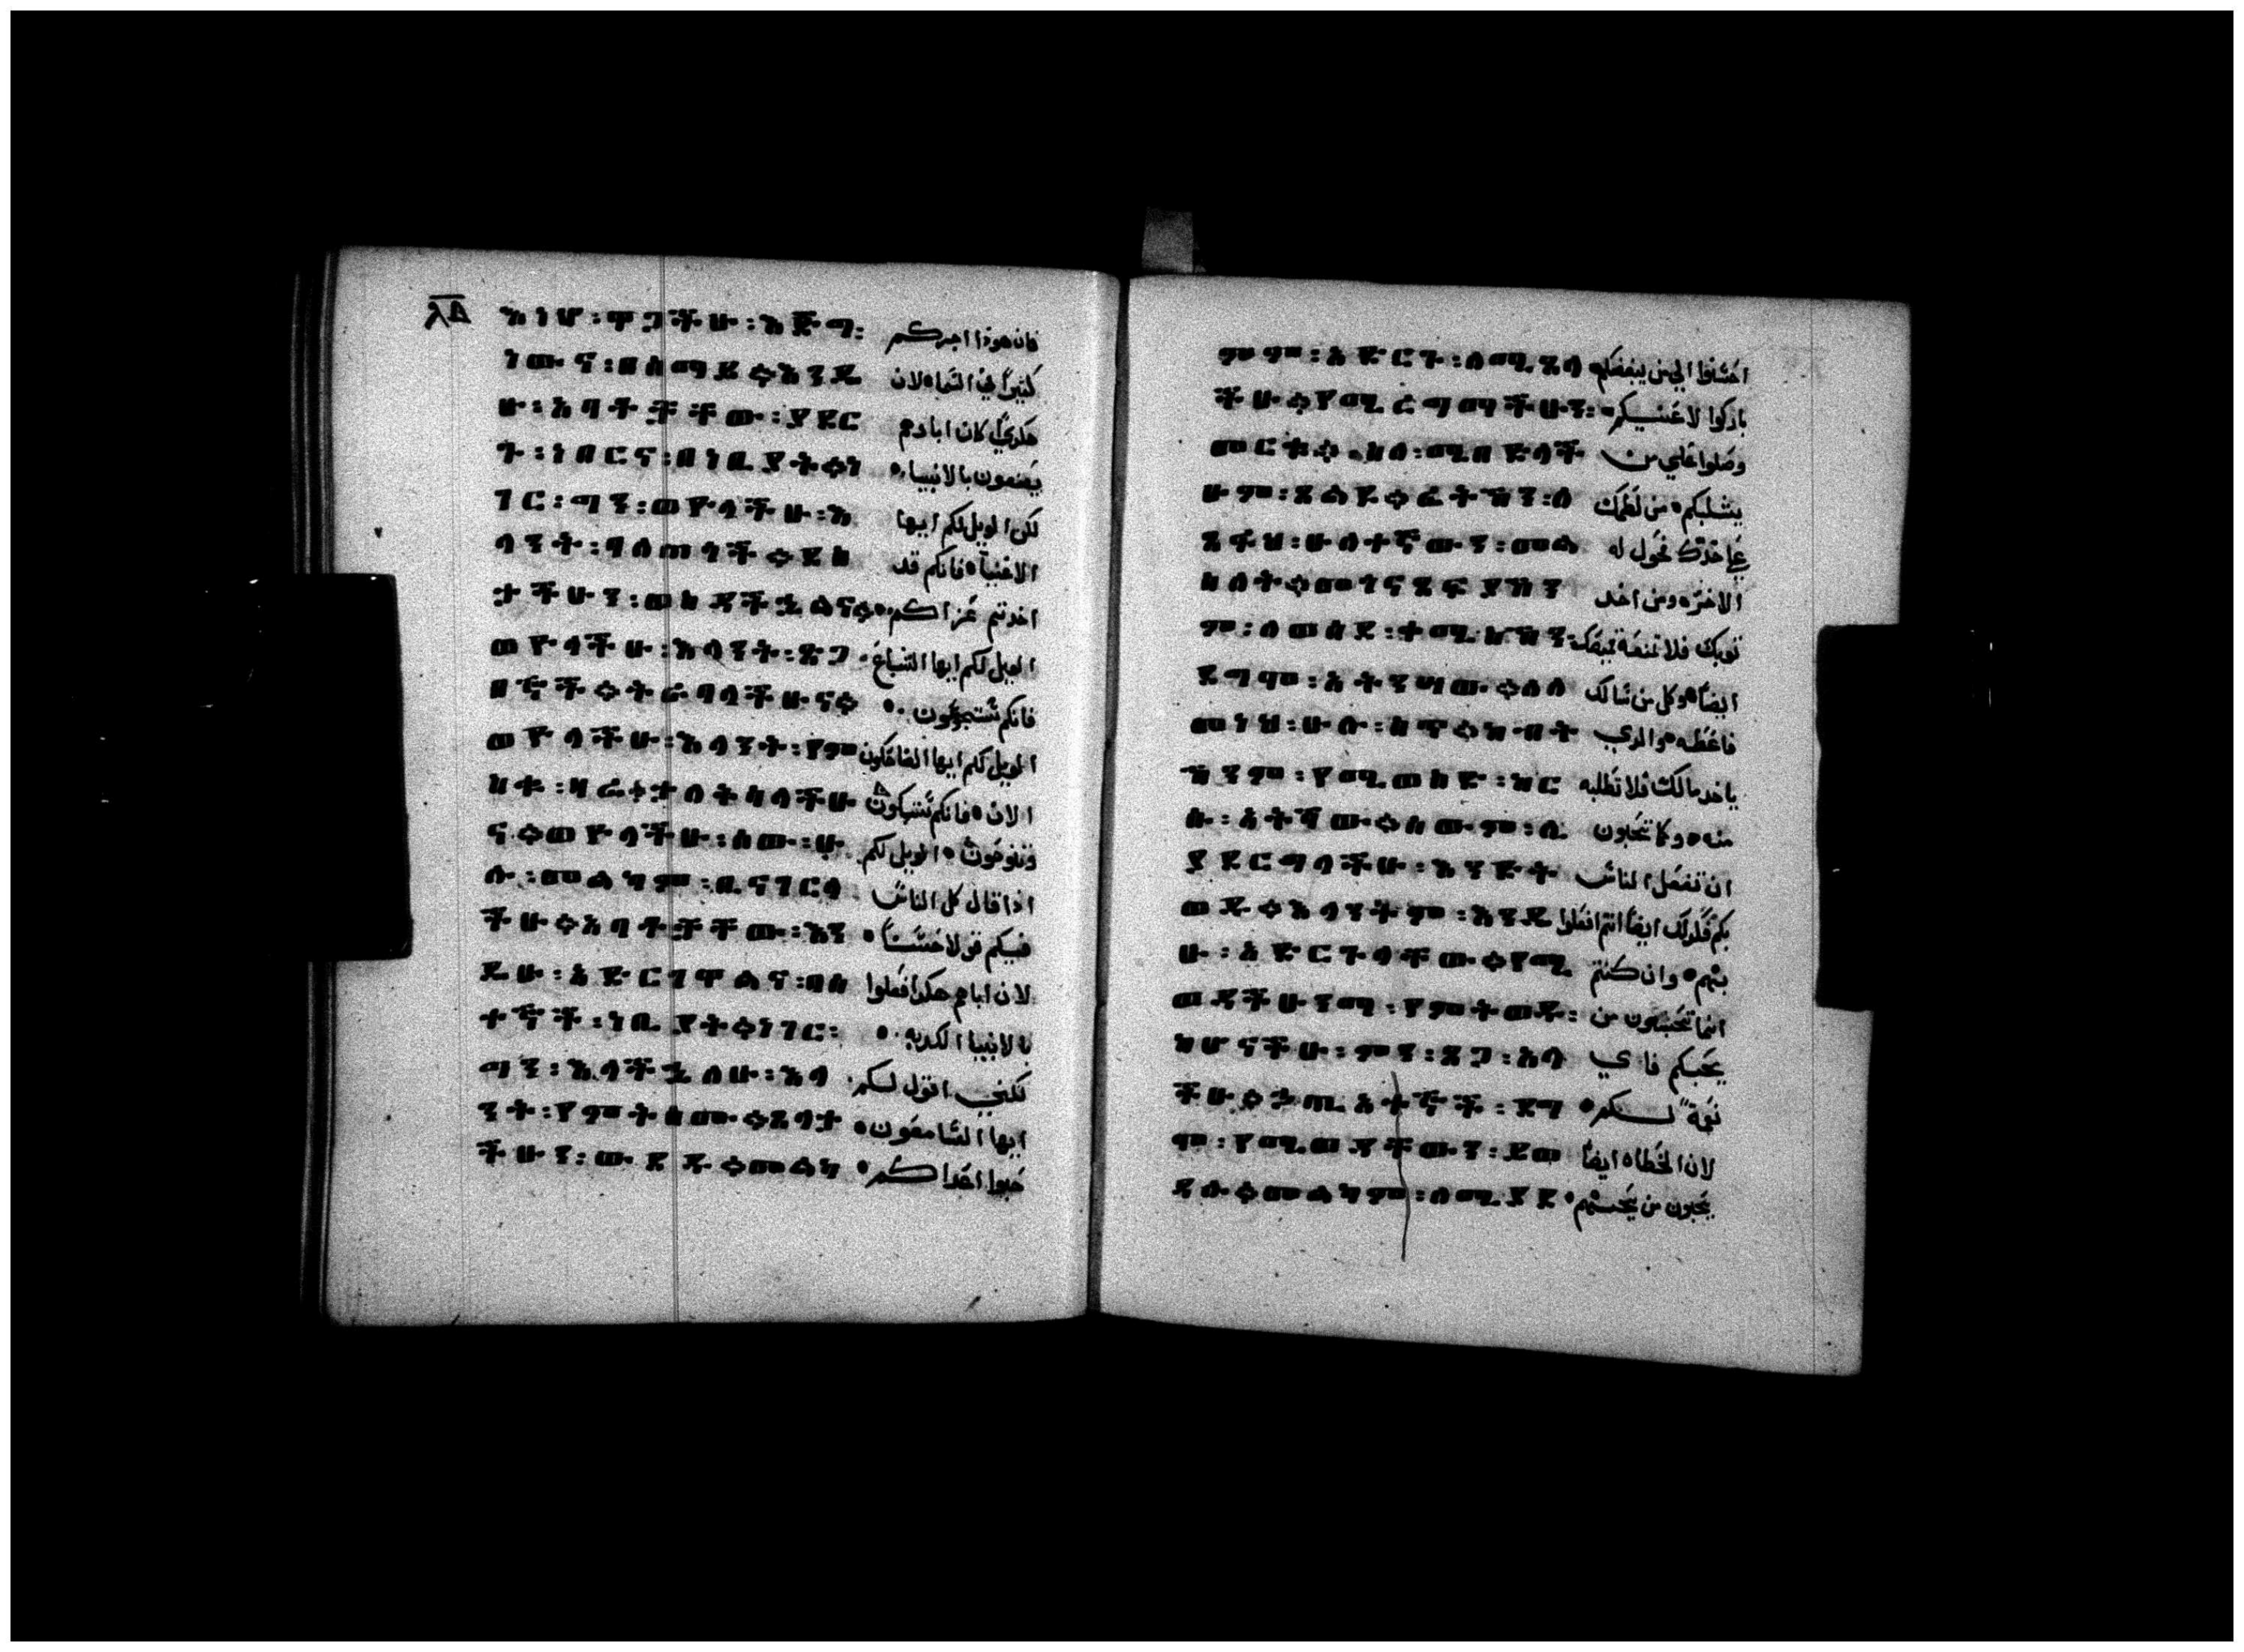 እነሆ፡ዋጋችሁ፡እጅግ፡ فان هوذا اجركم
ነው፡ና፡በሰማይ።እንዲ كثيرًا في السماء لان
ሁ፡አባቶቻቸው፡ያደር هكذي كان اباوهم
ጉ፡ነበርና፡በነቢያት።ነ يصنعون بالانبياء
ገር፡ግን፡ወዮላችሁ፡እ لكن الويل لكم ايها
ላንት፡ባለጠጎች።ደስ الاغنيآ فانكم قد
ታችሁን፡ወስዳችኋልና። اخدتم عزاكم
ወዮላችሁ፡እላንት፡ጽጋ الويل لكم ايها الشباع
በኞች።ትራባላችሁና። فانكم ستجوعون
ወዮላችሁ፡እላንት፡የም الويل لكم ايها الضاحكون
ስቁ፡ዛሬ።ታለቅሳላችሁ الان فانكم ستبكون
ና።ወዮላችሁ፡ሰው፡ሁ وتنوحون الويل لكم
ሉ፡መልካም፡ቢናገርላ اذا قال كل الناس
ችሁ።አባቶቻቸው፡እን فيكم قولا حسنًا
ዲሁ፡አድርገዋልና፡በሐ لان اباهم هكدا فعلوا
ተኞች፡ነቢያት።ነገር፡ بالانبيا الكدبه
ግን፡እላችኋለሁ፡እላ لكنني اقول لكم
ንት፡የምትሰሙ።ጸላታ ايها السامعون
ችሁን፡ውደዱ።መልካ حبوا اعداكم
ምም፡አድርጉ፡ለሚጸላ احسنوا الي من يبغضكم
ችሁ።የሚረግማችሁን፡ باركوا لاعنيكم
መርቁ።ስለ፡ሚበድላች وصلوا علي من
ሁም፡ጸልዩ።ፊትኽን፡ለ يسلبكم من لطمك
ጸፋህ፡ሁለተኛውን፡መል علي خدك فحول له
ስለት።መጎናጸፊያኽን الاخر ومن اخد
ም፡ለወሰደ፡ቀሚስኽን ثوبك فلا تمنعه قميصك
ደግሞ፡አትንሣው።ለለ ايضا وكل من سالك
መነህ፡ሁሉ፡ስጥ።ከብት فاعطه والدي
ኽንም፡የሚወስድ፡ከር ياخد مالك فلا تطلبه
ሱ፡አትሻው።ሰውም፡ሊ منه وكما تحبون
ያደርግላችሁ፡እንድት ان تفعل الناس
ወዱ።እላንትም፡እንዲ بكم كدلك ايضا انتم افعلوا
ሁ፡አድርጉላቸው።የሚ بهم وان كنتم
ወዳችሁንማ፡የምትወዱ፡ انما تحبون من
ከሆናችሁ፡ምን፡ጸጋ፡አላ يحبكم فاي
ችሁ።ኃጢአተኞች፡ደግ نعمة لكم
ሞ፡የሚወዳቸውን፡ይወ لان الخطاه ايضا
ዳሉ።መልካም፡ለሚያደ يحبون من يحبهم